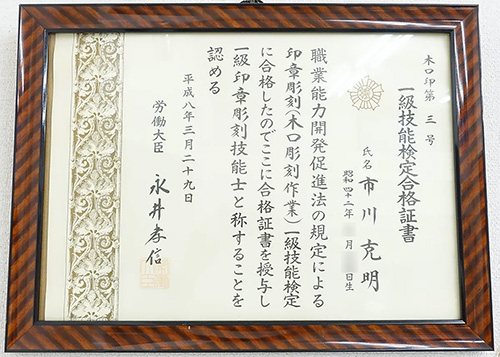 木口印第三号
一級技能検定合格証書
氏名 市川克明
昭和四十二年 月 日生
職業能力開発促進法の規定による
印章彫刻(木口彫刻作業)一級技能検定
に合格したのでここに合格証書を授与し
一級印章彫刻技能士と称することを
認める
平成八年三月二十九日
労働大臣 永井孝信